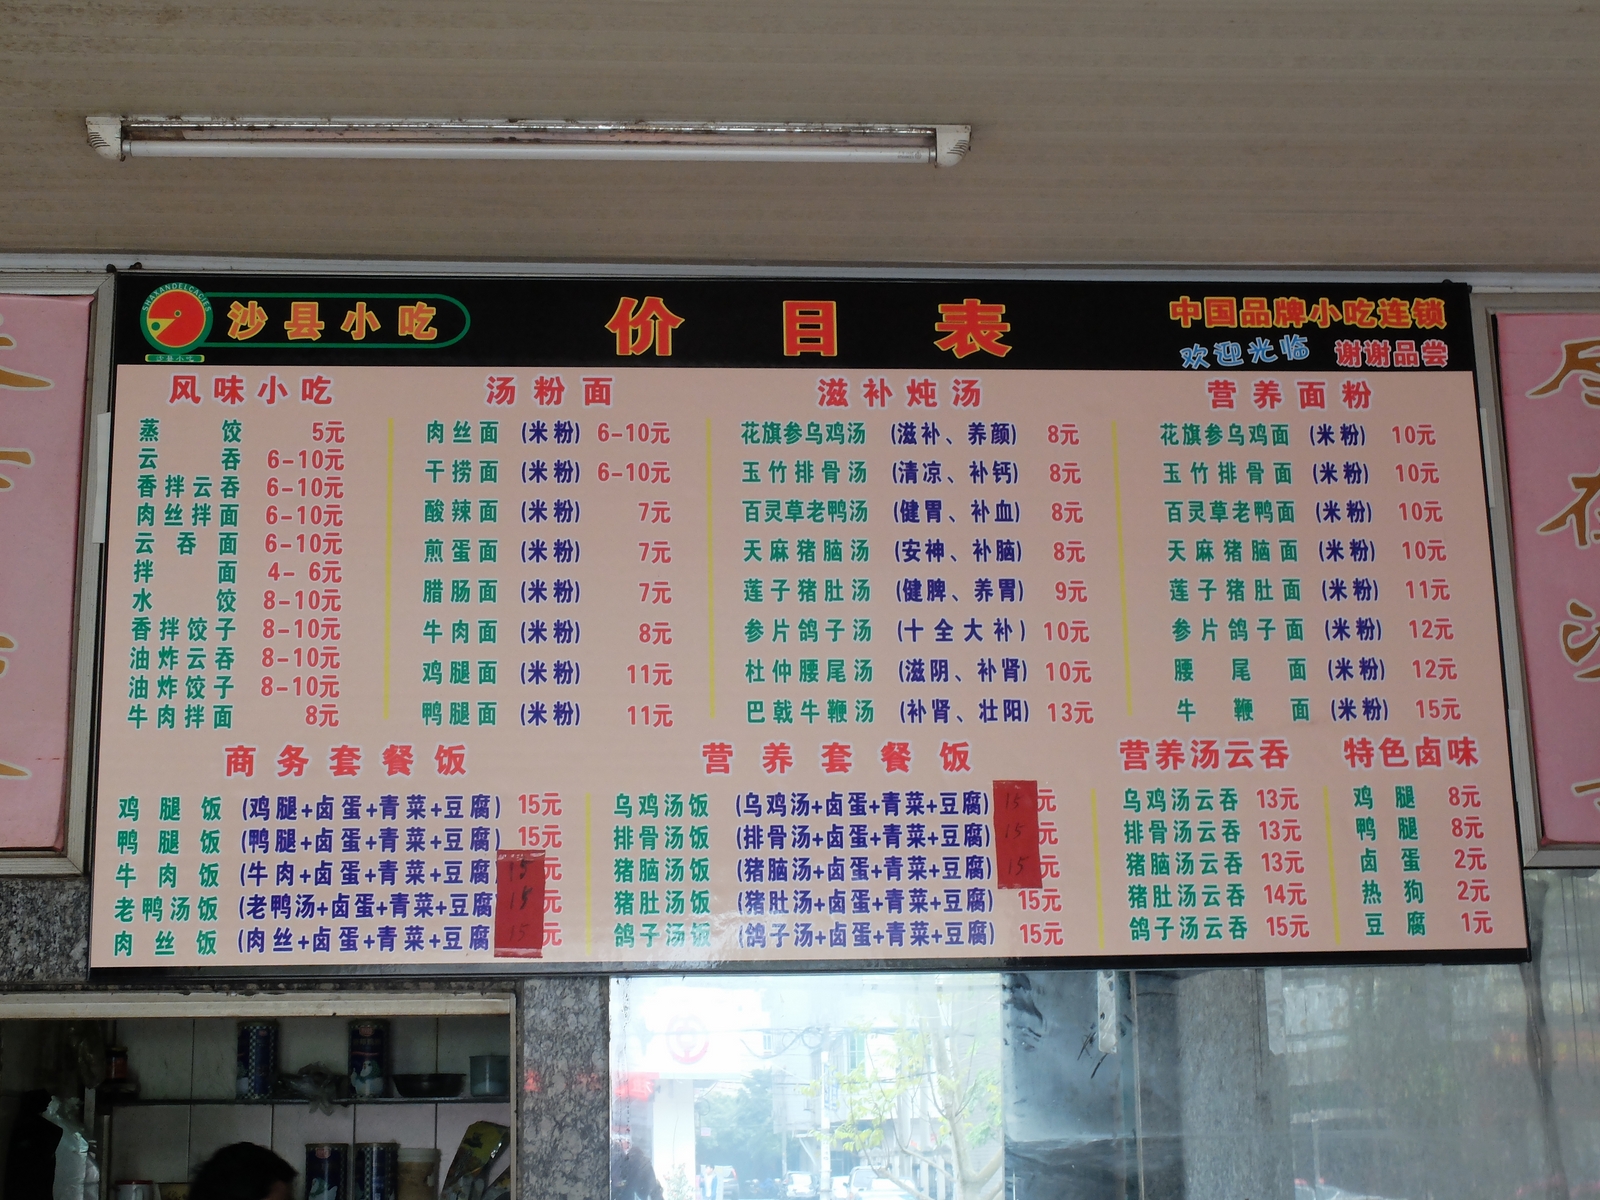 SHAXIANDELCACIES
沙县小吃
沙县小吃
价目表
中国品牌小吃连锁
欢迎光临 谢谢品尝
风味小吃
蒸饺 5元
云吞 6-10元
香拌云吞 6-10元
肉丝拌面 6-10元
云吞面 6-10元
拌面 4-6元
水饺 8-10元
香拌饺子 8-10元
油炸云吞 8-10元
油炸饺子 8-10元
牛肉拌面 8元
汤粉面
肉丝面 (米粉) 6-10元
干捞面 (米粉) 6-10元
酸辣面 (米粉) 7元
煎蛋面 (米粉) 7元
腊肠面 (米粉) 7元
牛肉面 (米粉) 8元
鸡腿面 (米粉) 11元
鸭腿面 (米粉) 11元
滋补炖汤
花旗参乌鸡汤 (滋补、养颜) 8元
玉竹排骨汤 (清凉、补钙) 8元
百灵草老鸭汤 (健胃、补血) 8元
天麻猪脑汤 (安神、补脑) 8元
莲子猪肚汤 (健脾、养胃) 9元
参片鸽子汤 (十全大补) 10元
杜仲腰尾汤 (滋阴、补肾) 10元
巴戟牛鞭汤 (补肾、壮阳) 13元
营养面粉
花旗参乌鸡面 (米粉) 10元
玉竹排骨面 (米粉) 10元
百灵草老鸭面 (米粉) 10元
天麻猪脑面 (米粉) 10元
莲子猪肚面 (米粉) 11元
参片鸽子面 (米粉) 12元
腰尾面 (米粉) 12元
牛鞭面 (米粉) 15元
商务套餐饭
鸡腿饭 (鸡腿+卤蛋+青菜+豆腐) 15元
鸭腿饭 (鸭腿+卤蛋+青菜+豆腐) 15元
牛肉饭 (牛肉+卤蛋+青菜+豆腐 15元
老鸭汤饭 (老鸭汤+卤蛋+青菜+豆腐 15元
肉丝饭 (肉丝+卤蛋+青菜+豆腐 15元
营养套餐饭
乌鸡汤饭 (乌鸡汤+卤蛋+青菜+豆腐) 15元
排骨汤饭 (排骨汤+卤蛋+青菜+豆腐) 15元
猪脑汤饭 (猪脑汤+卤蛋+青菜+豆腐) 15元
猪肚汤饭 (猪肚汤+卤蛋+青菜+豆腐) 15元
鸽子汤饭 (鸽子汤+卤蛋+青菜+豆腐) 15元
营养汤云吞
乌鸡汤云吞 13元
排骨汤云吞 13元
猪脑汤云吞 13元
猪肚汤云吞 14元
鸽子汤云吞 15元
特色卤味
鸡腿 8元
鸭腿 8元
卤蛋 2元
热狗 2元
豆腐 1元